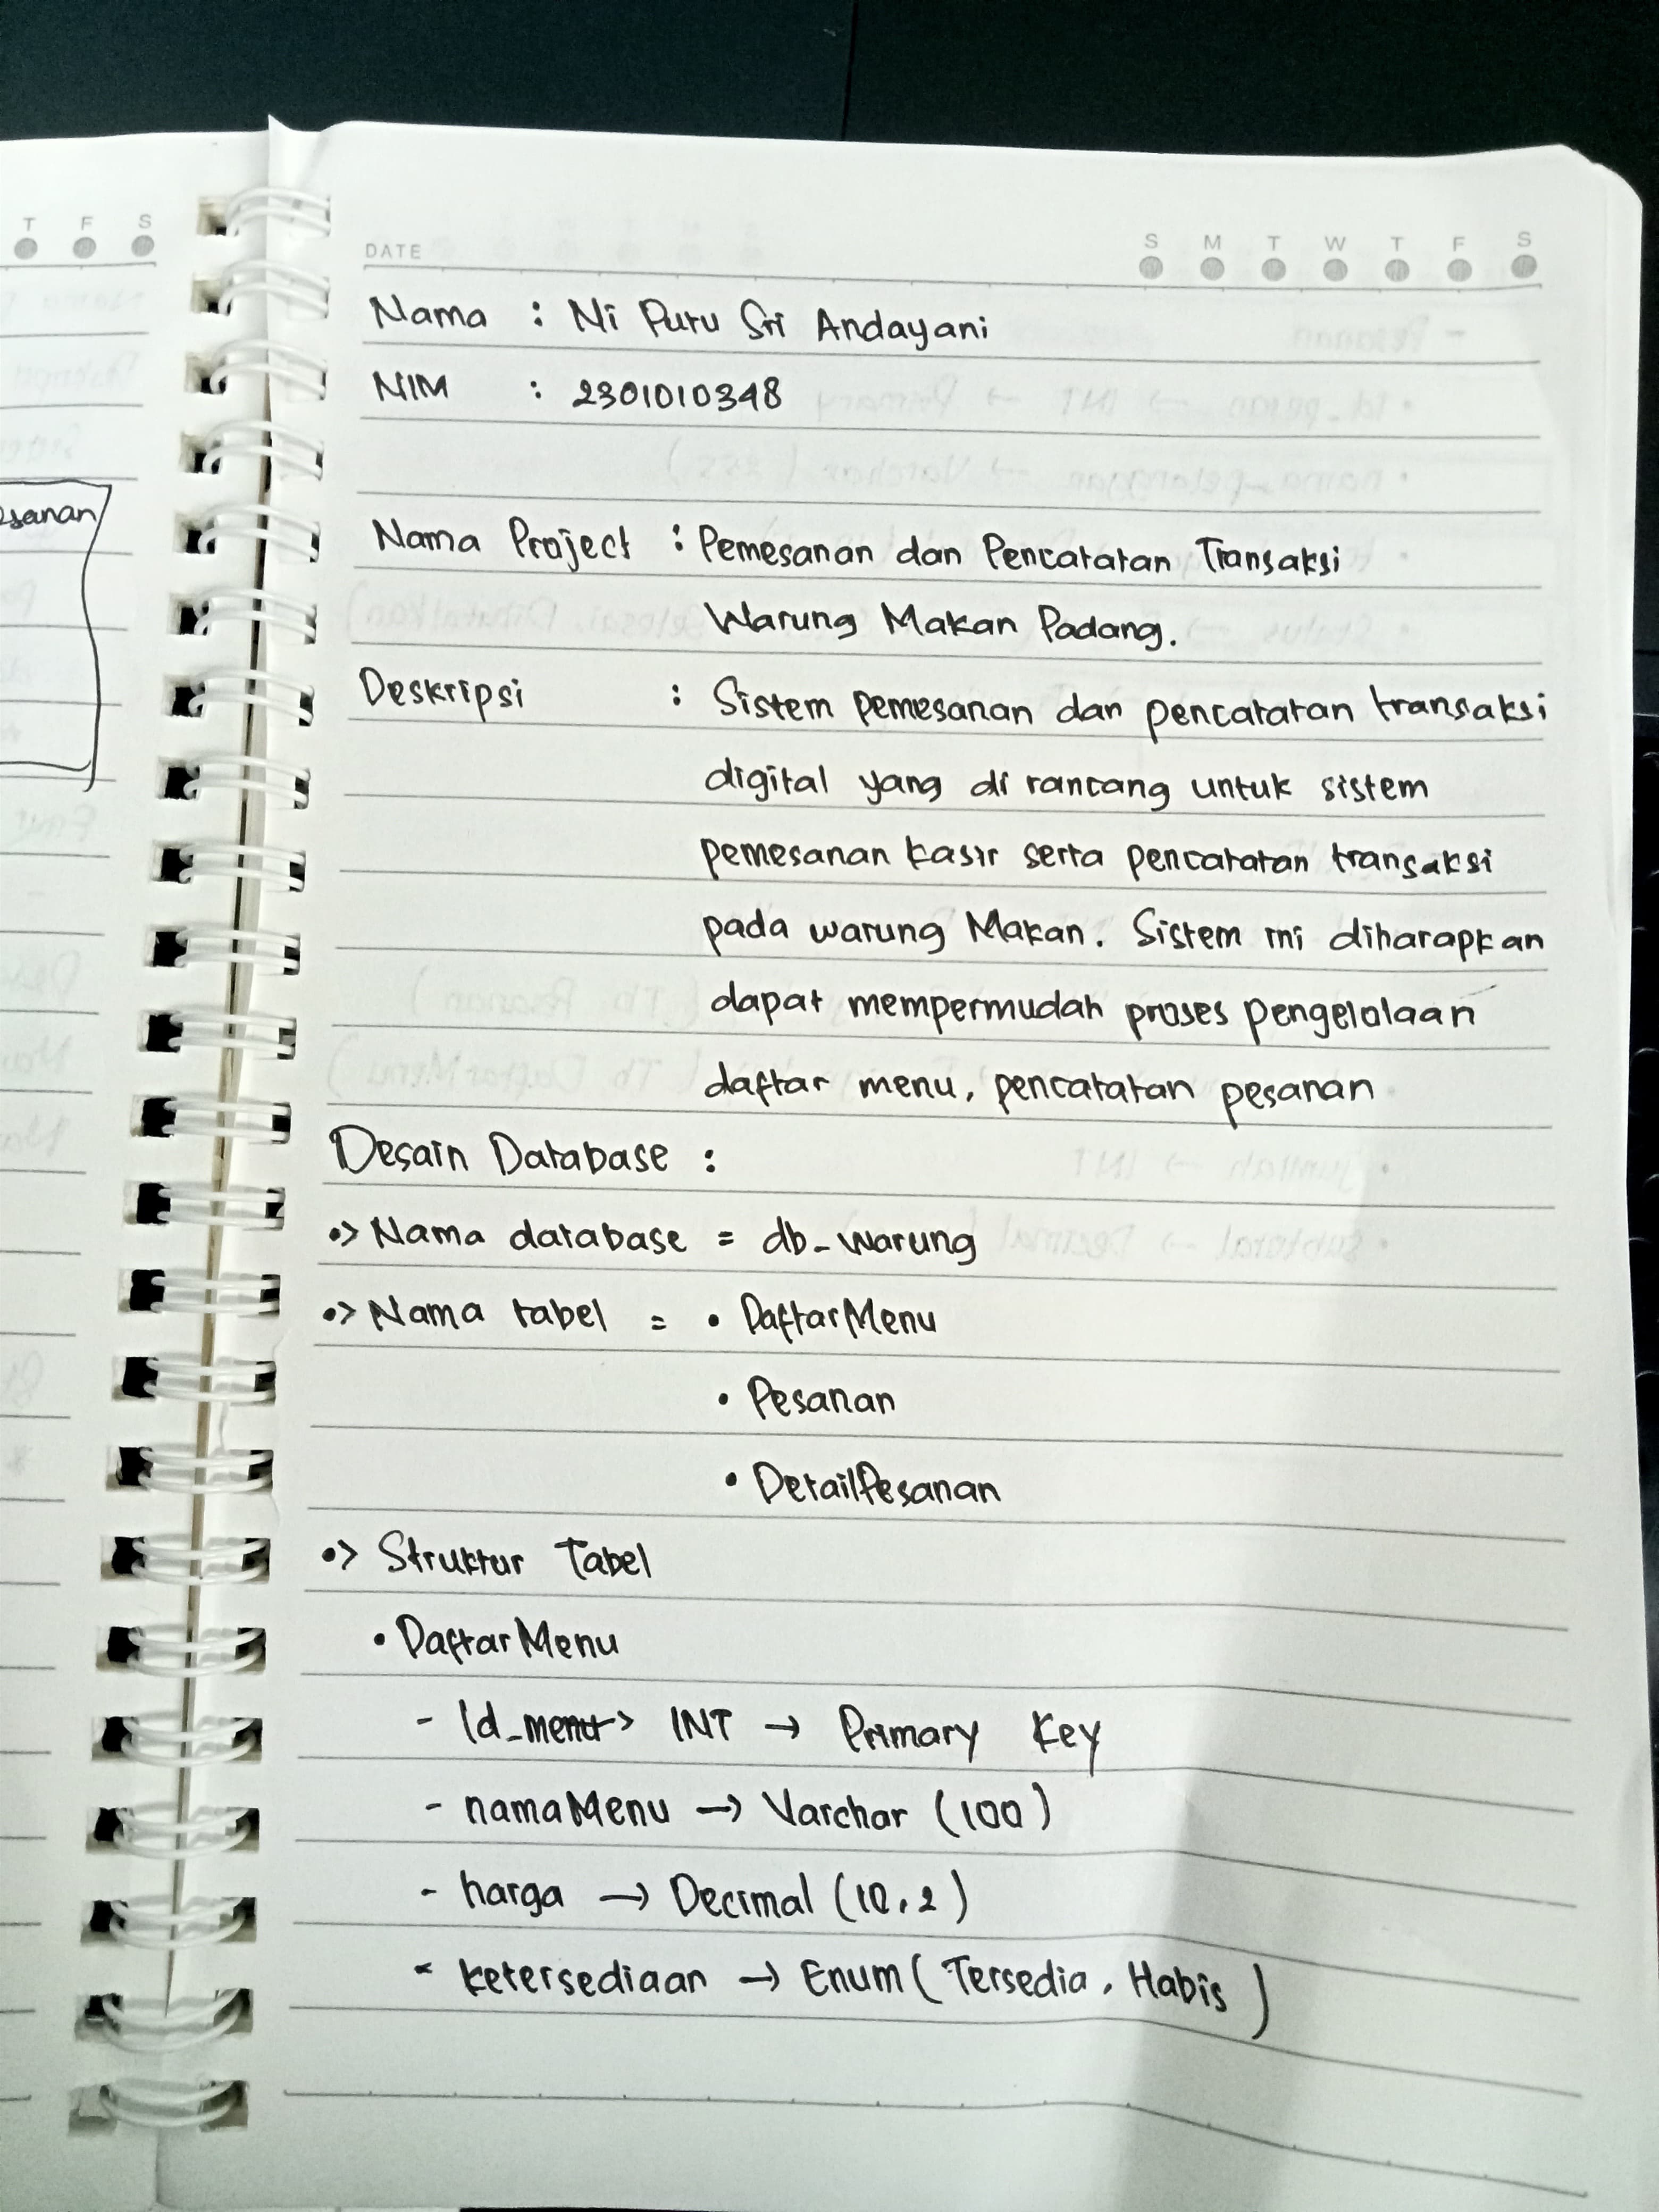 T F S
esanan
DATE S M T W T F S
Nama : Ni Putu Sri Andayani
NIM : 2301010348
Nama Project : Pemesanan dan Pencatatan Transaksi
Warung Makan Padang.
Deskripsi : Sistem pemesanan dan pencatatan transaksi
digital yang di rancang untuk sistem
pemesanan kasir serta pencatatan transaksi
pada warung Makan. Sistem ini diharapkan
dapat mempermudah proses pengelolaan
daftar menu, pencatatan pesanan
Desain Database :
•> Nama database = db_warung
•> Nama tabel = • DaftarMenu
• Pesanan
• DetailPesanan
•> Struktur Tabel
• DaftarMenu
- Id_menu-> INT → Primary Key
- namaMenu → Varchar (100)
- harga → Decimal (10,2)
- ketersediaan → Enum (Tersedia, Habis)